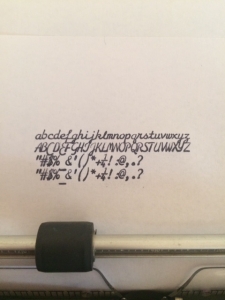 abcdefghijklmnopqrstuvwxyz
ABCDEFGHIJKLMNOPQRSTUVWXYZ
"#$%_&'()*+¼!:@,.?
"#$%_&'()*+¼!:@,.?